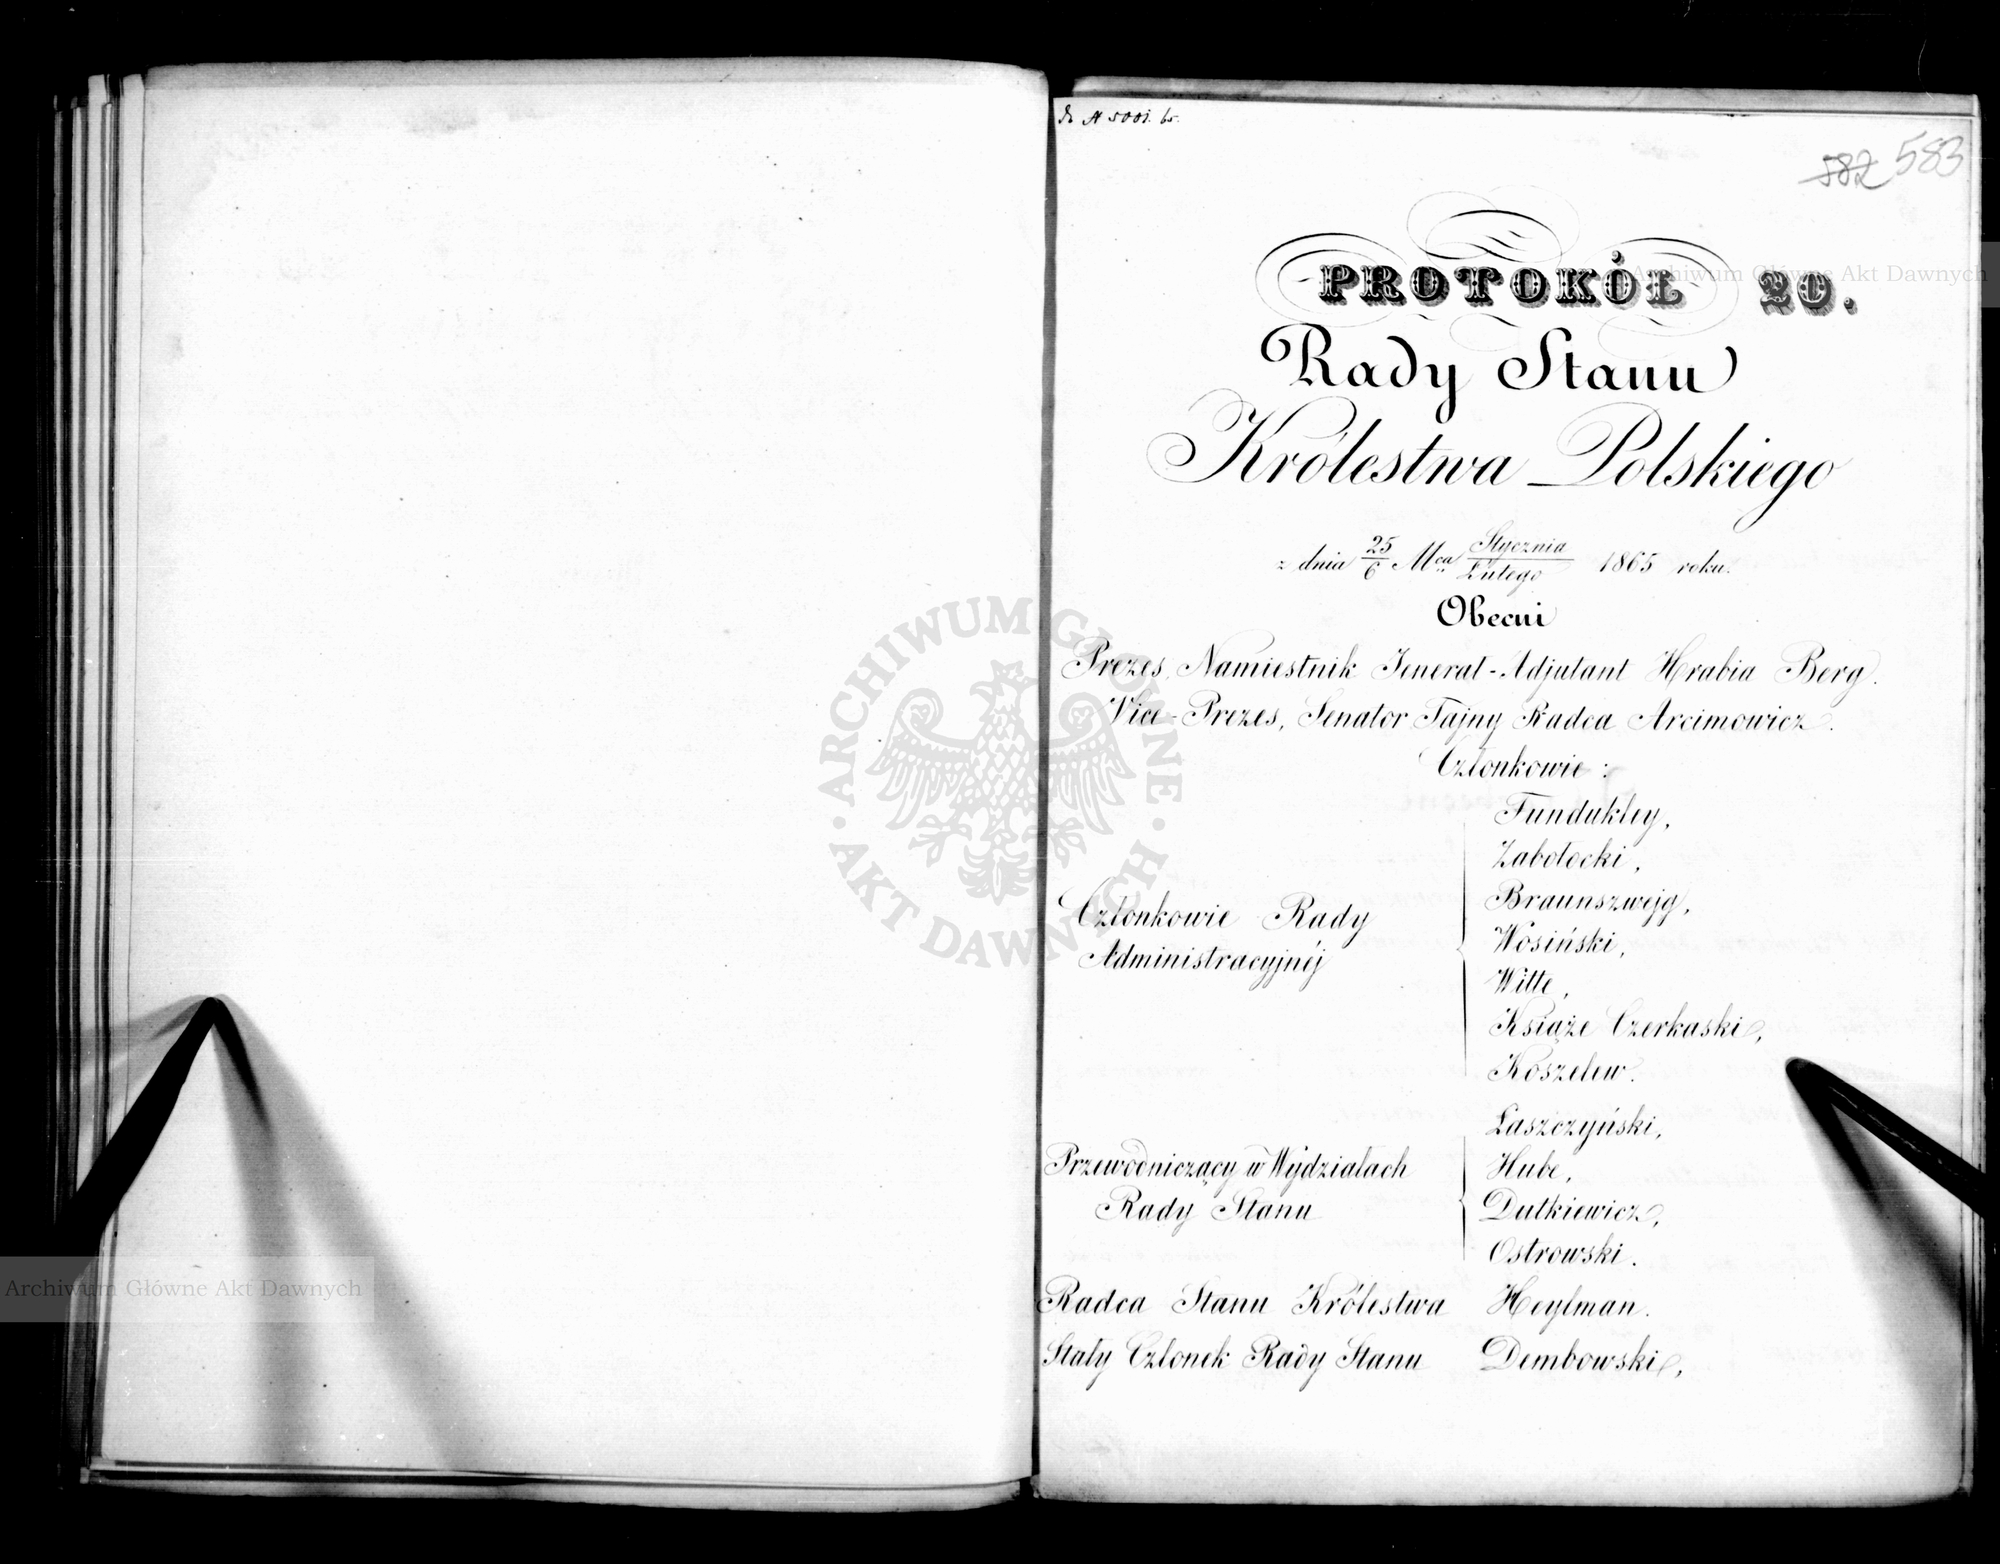 583
582
PROTOKÓŁ 20.
Rady Stanu
Królestwa Polskiego
z dnia 25/6 Mca Stycznia/Lutego 1865 roku.
Obecni
Prezes, Namiestnik Jenerał-Adjutant Hrabia Berg.
Vice-Prezes, Senator Tajny Radca Arcimowicz.
Członkowie:
Członkowie Rady
Administracyjnéj
Fundukley,
Zabołocki,
Braunszwejg,
Wosiński,
Witte,
Książe Czerkaski,
Koszelew.
Przewodniczący w Wydziałach
Rady Stanu
Łaszczyński,
Hube,
Dutkiewicz,
Ostrowski.
Radca Stanu Królestwa Heylman.
Stały Członek Rady Stanu Dembowski,
ARCHIWUM GŁÓWNE AKT DAWNYCH
Archiwum Główne Akt Dawnych
Archiwum Główne Akt Dawnych